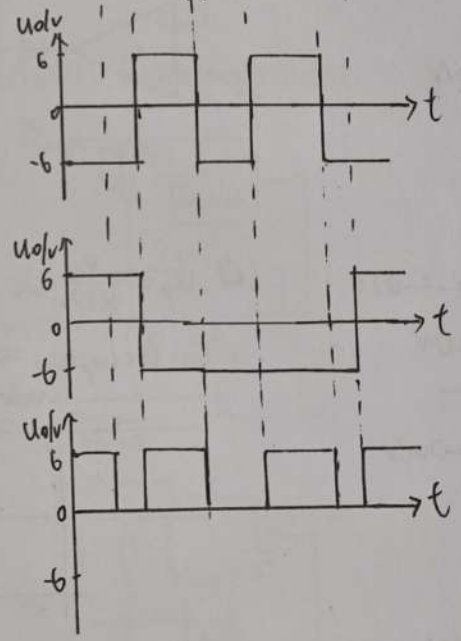 uo/v
6
0
-6
t
uo/v
6
0
-6
t
uo/v
6
0
-6
t